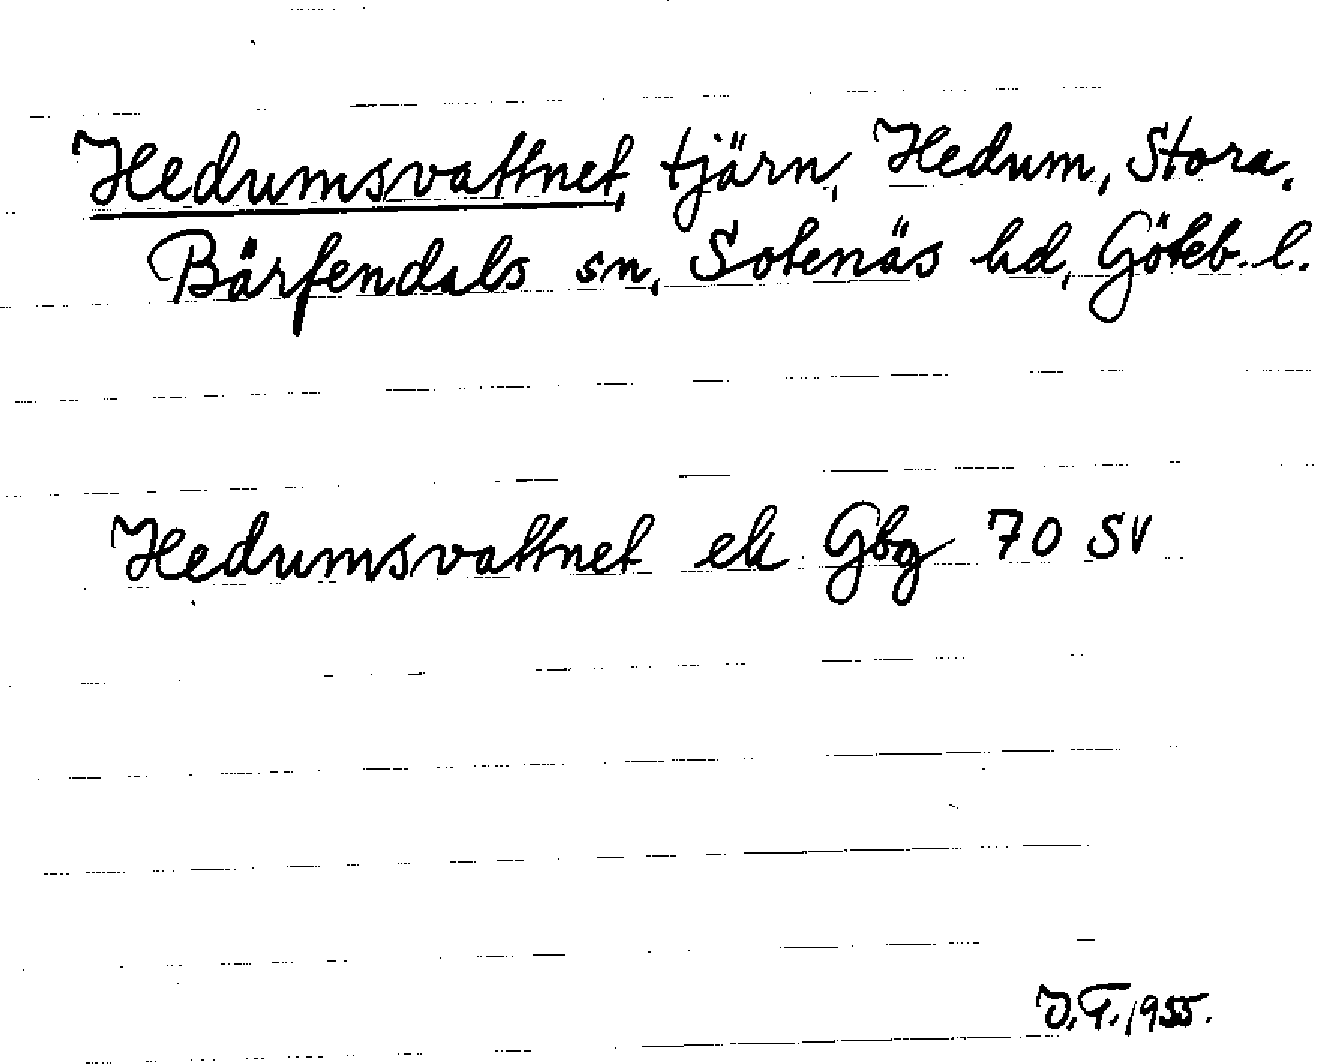 Hedumsvattnet, tjärn, Hedum, Stora.
Bärfendals sn, Sotenäs hd, Göteb. l.
Hedumsvattnet ek Gbg 70 SV
J.T. 1955.